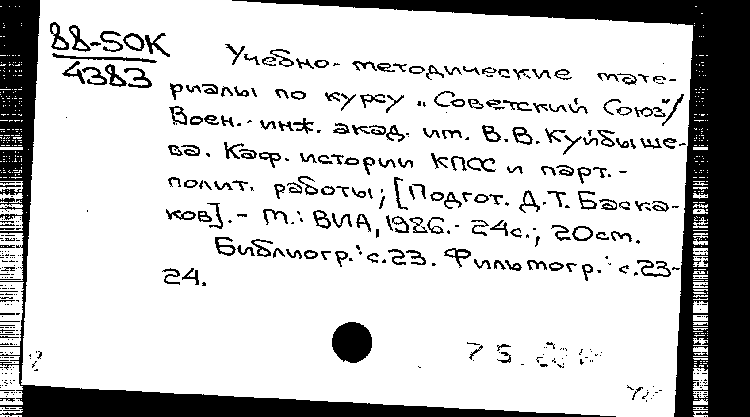 88-50К
4383
Учебно-методические мате-
риалы по курсу „Советский Союз"/
Воен.-инж. акад. им. В.В. Куйбыше-
ва. Каф. истории КПСС и парт.-
полит. работы; [Подгот. Д.Т. Баска-
ков]. - М.: ВИА, 1986. - 24с.; 20см.
Библиогр.: с.23. Фильмогр.: с.23-
24.
75.